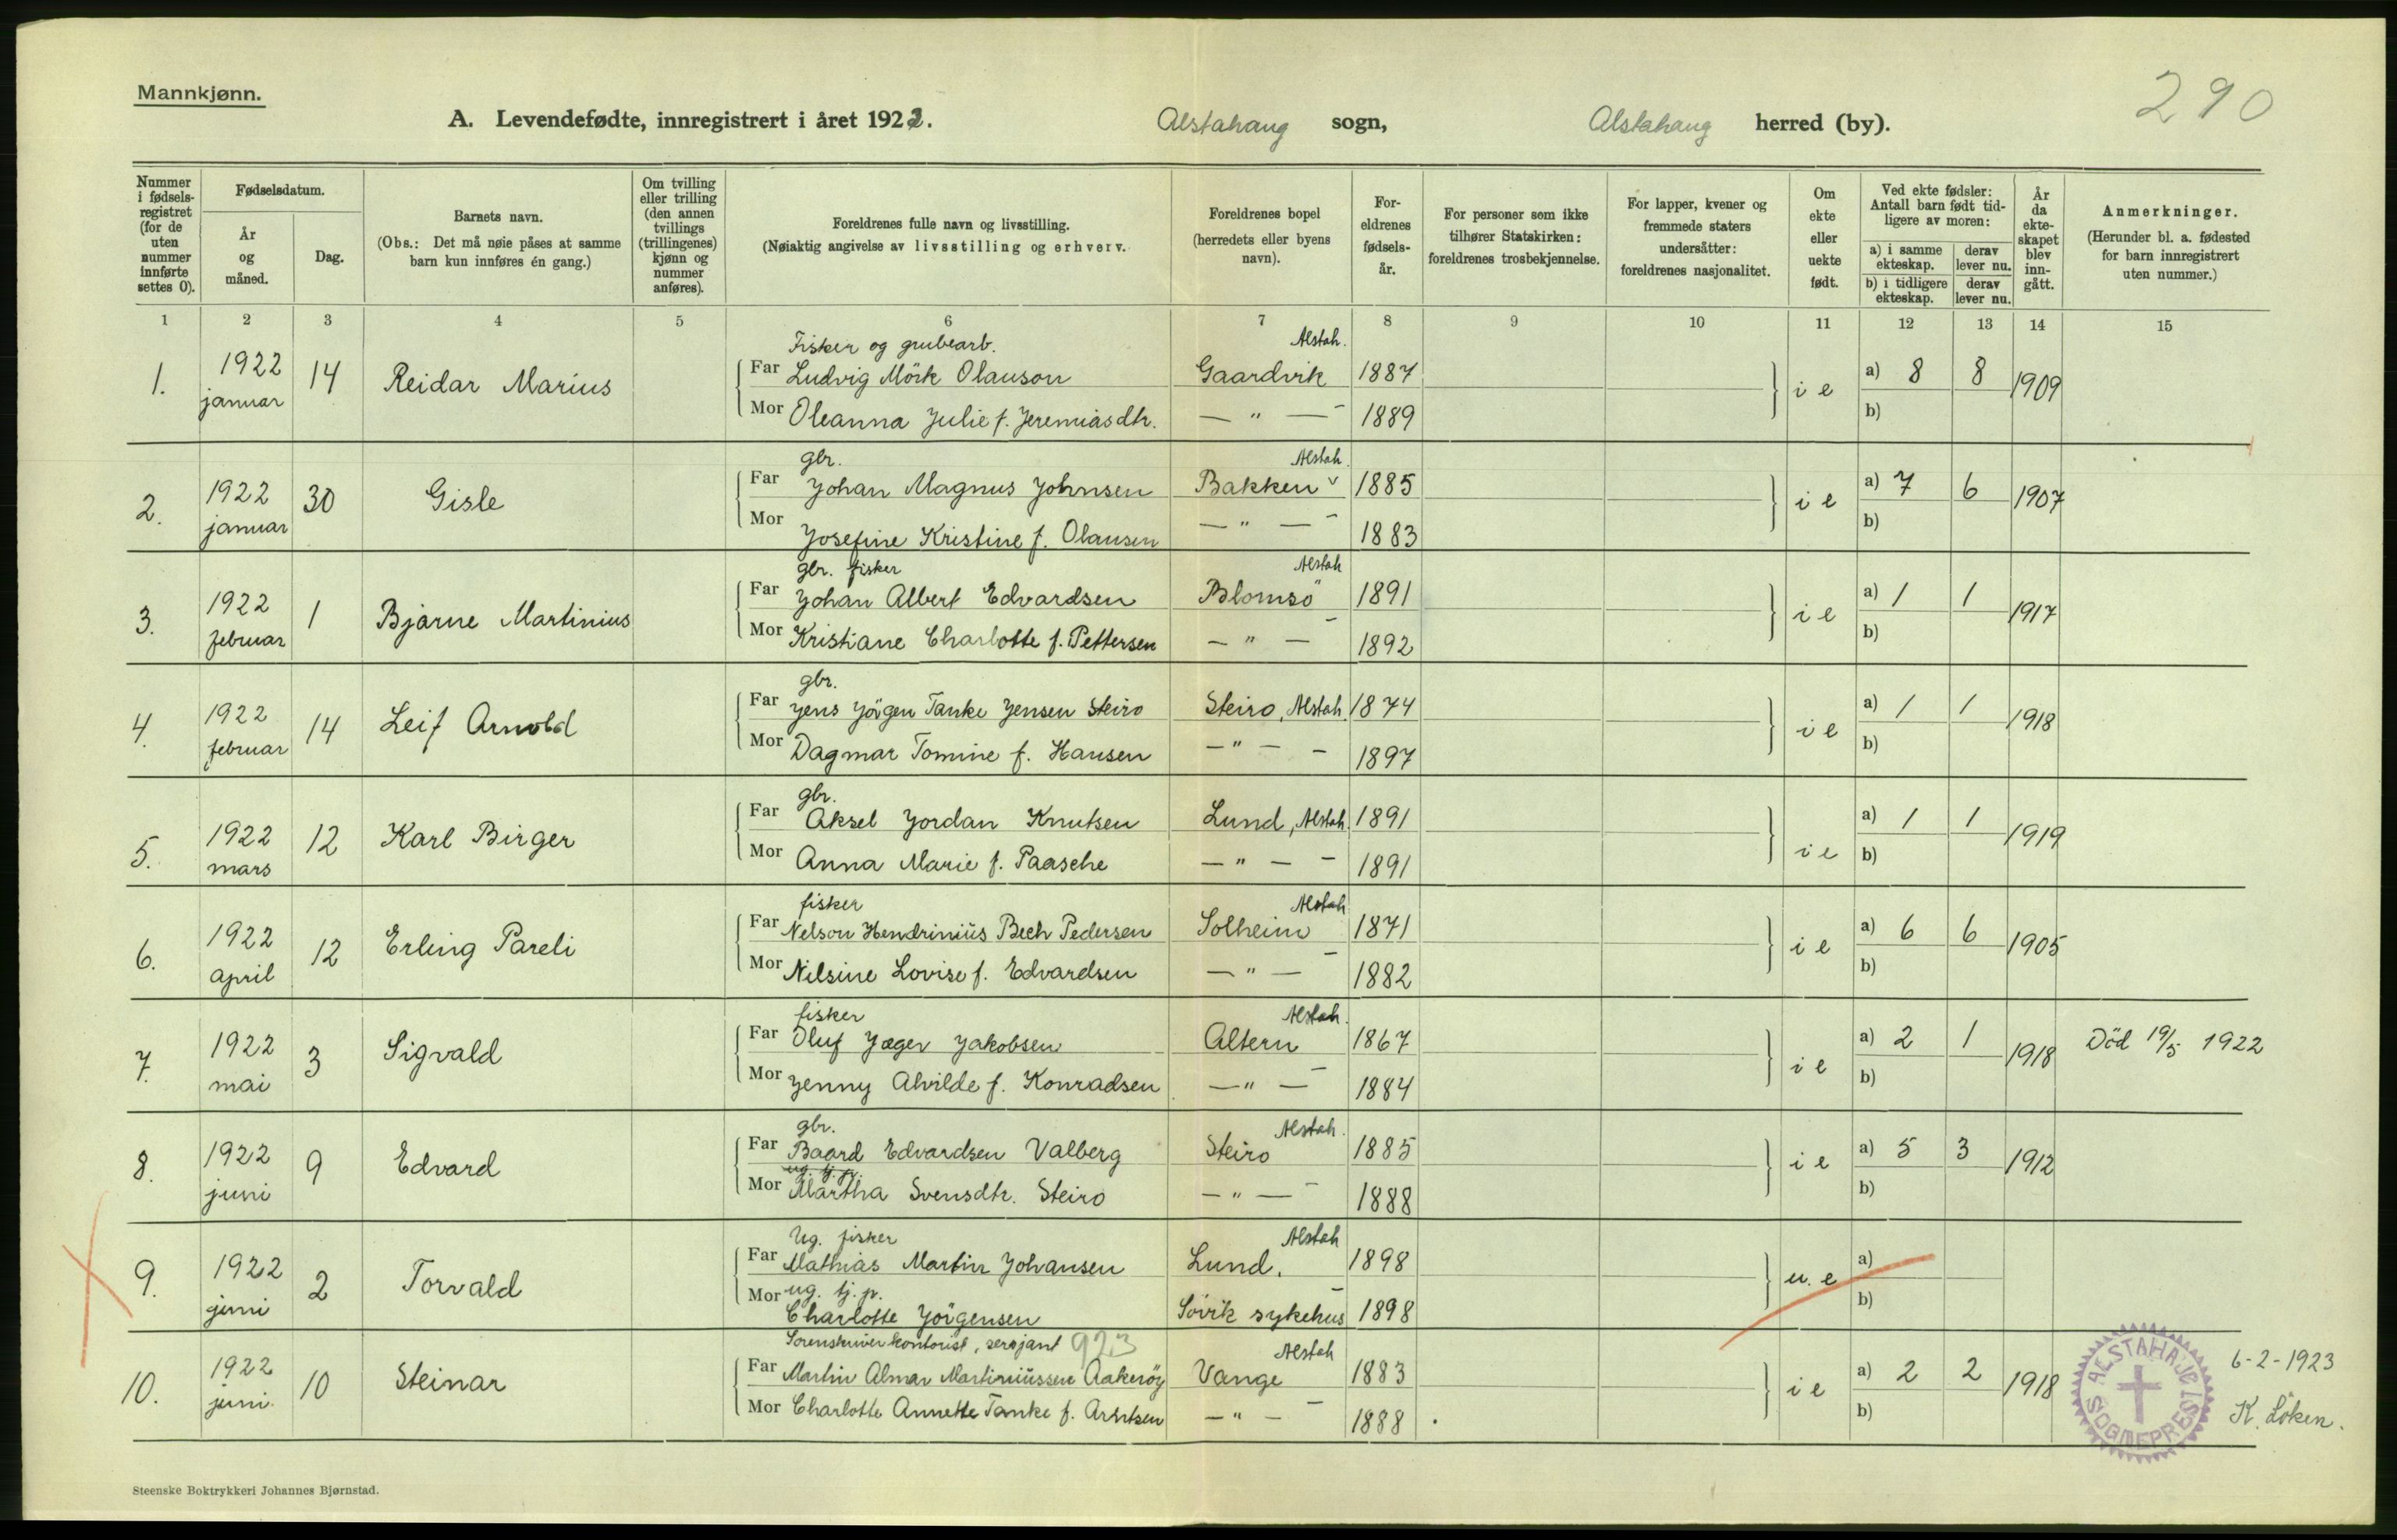 Mannkjønn.
290
A. Levendefødte, innregistrert i året 1922.
Alstahaug sogn, Alstahaug herred (by).
Nummer i fødselsregistret (for de uten nummer innførte settes 0).
Fødselsdatum.
År og måned.
Dag.
Barnets navn.
(Obs.: Det må nøie påses at samme barn kun innføres én gang.)
Om tvilling eller trilling (den annen tvillings (trillingenes) kjønn og nummer anføres).
Foreldrenes fulle navn og livsstilling.
(Nøiaktig angivelse av livsstilling og erhverv.
Foreldrenes bopel (herredets eller byens navn).
Foreldrenes fødselsår.
For personer som ikke tilhører Statskirken: foreldrenes trosbekjennelse.
For lapper, kvener og fremmede staters undersåtter: foreldrenes nasjonalitet.
Om ekte eller uekte født.
Ved ekte fødsler: Antall barn født tidligere av moren:
a) i samme ekteskap. derav lever nu.
b) i tidligere ekteskap. derav lever nu.
År da ekteskapet blev inngått.
Anmerkninger.
(Herunder bl. a. fødested for barn innregistrert uten nummer.)
1 2 3 4 5 6 7 8 9 10 11 12 13 14 15
Fisker og grubearb. Alstah.
1. 1922 januar 14 Reidar Marius Far Ludvig Mörk Olauson Gaardvik 1887 i e a) 8 8 1909
Mor Oleanna Julie f. Jeremiasdtr. — " — 1889 b)
gbr. Alstah.
2. 1922 januar 30 Gisle Far Johan Magnus Johnsen Bakken 1885 i e a) 7 6 1907
Mor Josefine Kristine f. Olausen — " — 1883 b)
gbr. fisker Alstah
3. 1922 februar 1 Bjarne Martinius Far Johan Albert Edvardsen Blomsö 1891 i e a) 1 1 1917
Mor Kristiane Charlotte f. Pettersen — " — 1892 b)
gbr.
4. 1922 februar 14 Leif Arnold Far Jens Jörgen Tanke Jensen Steiro Steiro, Alstah 1874 i e a) 1 1 1918
Mor Dagmar Tomine f. Hansen — " — 1897 b)
gbr.
5. 1922 mars 12 Karl Birger Far Aksel Jordan Knutsen Lund, Alstah. 1891 i e a) 1 1 1919
Mor Anna Marie f. Paasche — " — 1891 b)
fisker Alstah
6. 1922 april 12 Erling Pareli Far Nelson Hendriniüs Bech Pedersen Solheim 1871 i e a) 6 6 1905
Mor Nilsine Lovise f. Edvardsen — " — 1882 b)
fisker Alstah.
7. 1922 mai 3 Sigvald Far Oluf Jæger Jakobsen Altern 1867 i e a) 2 1 1918 Död 19/5 1922
Mor Jenny Alvilde f. Konradsen — " — 1884 b)
gbr. Alstah.
8. 1922 juni 9 Edvard Far Baard Edvardsen Valberg Steiro 1885 i e a) 5 3 1912
ug. tj. p.
Mor Martha Svensdtr. Steiro — " — 1888 b)
Ug. fisker Alstah
9. 1922 juni 2 Torvald Far Mathias Martin Johansen Lund. 1898 u. e a)
Mor ug. tj. p.
Charlotte Jörgensen Sövik sykehus 1898 b)
Sorenskriverkontorist, sersjant 923 Alstah
10. 1922 juni. 10 Steinar Far Martin Almar Martiniüssen Aakeröy Vange 1883 i e a) 2 2 1918
Mor Charlotte Annette Tanke f. Arntsen — " — 1888 b)
ALSTAHAUG SOGNEPREST
6-2-1923
K. Löken.
Steenske Boktrykkeri Johannes Bjørnstad.